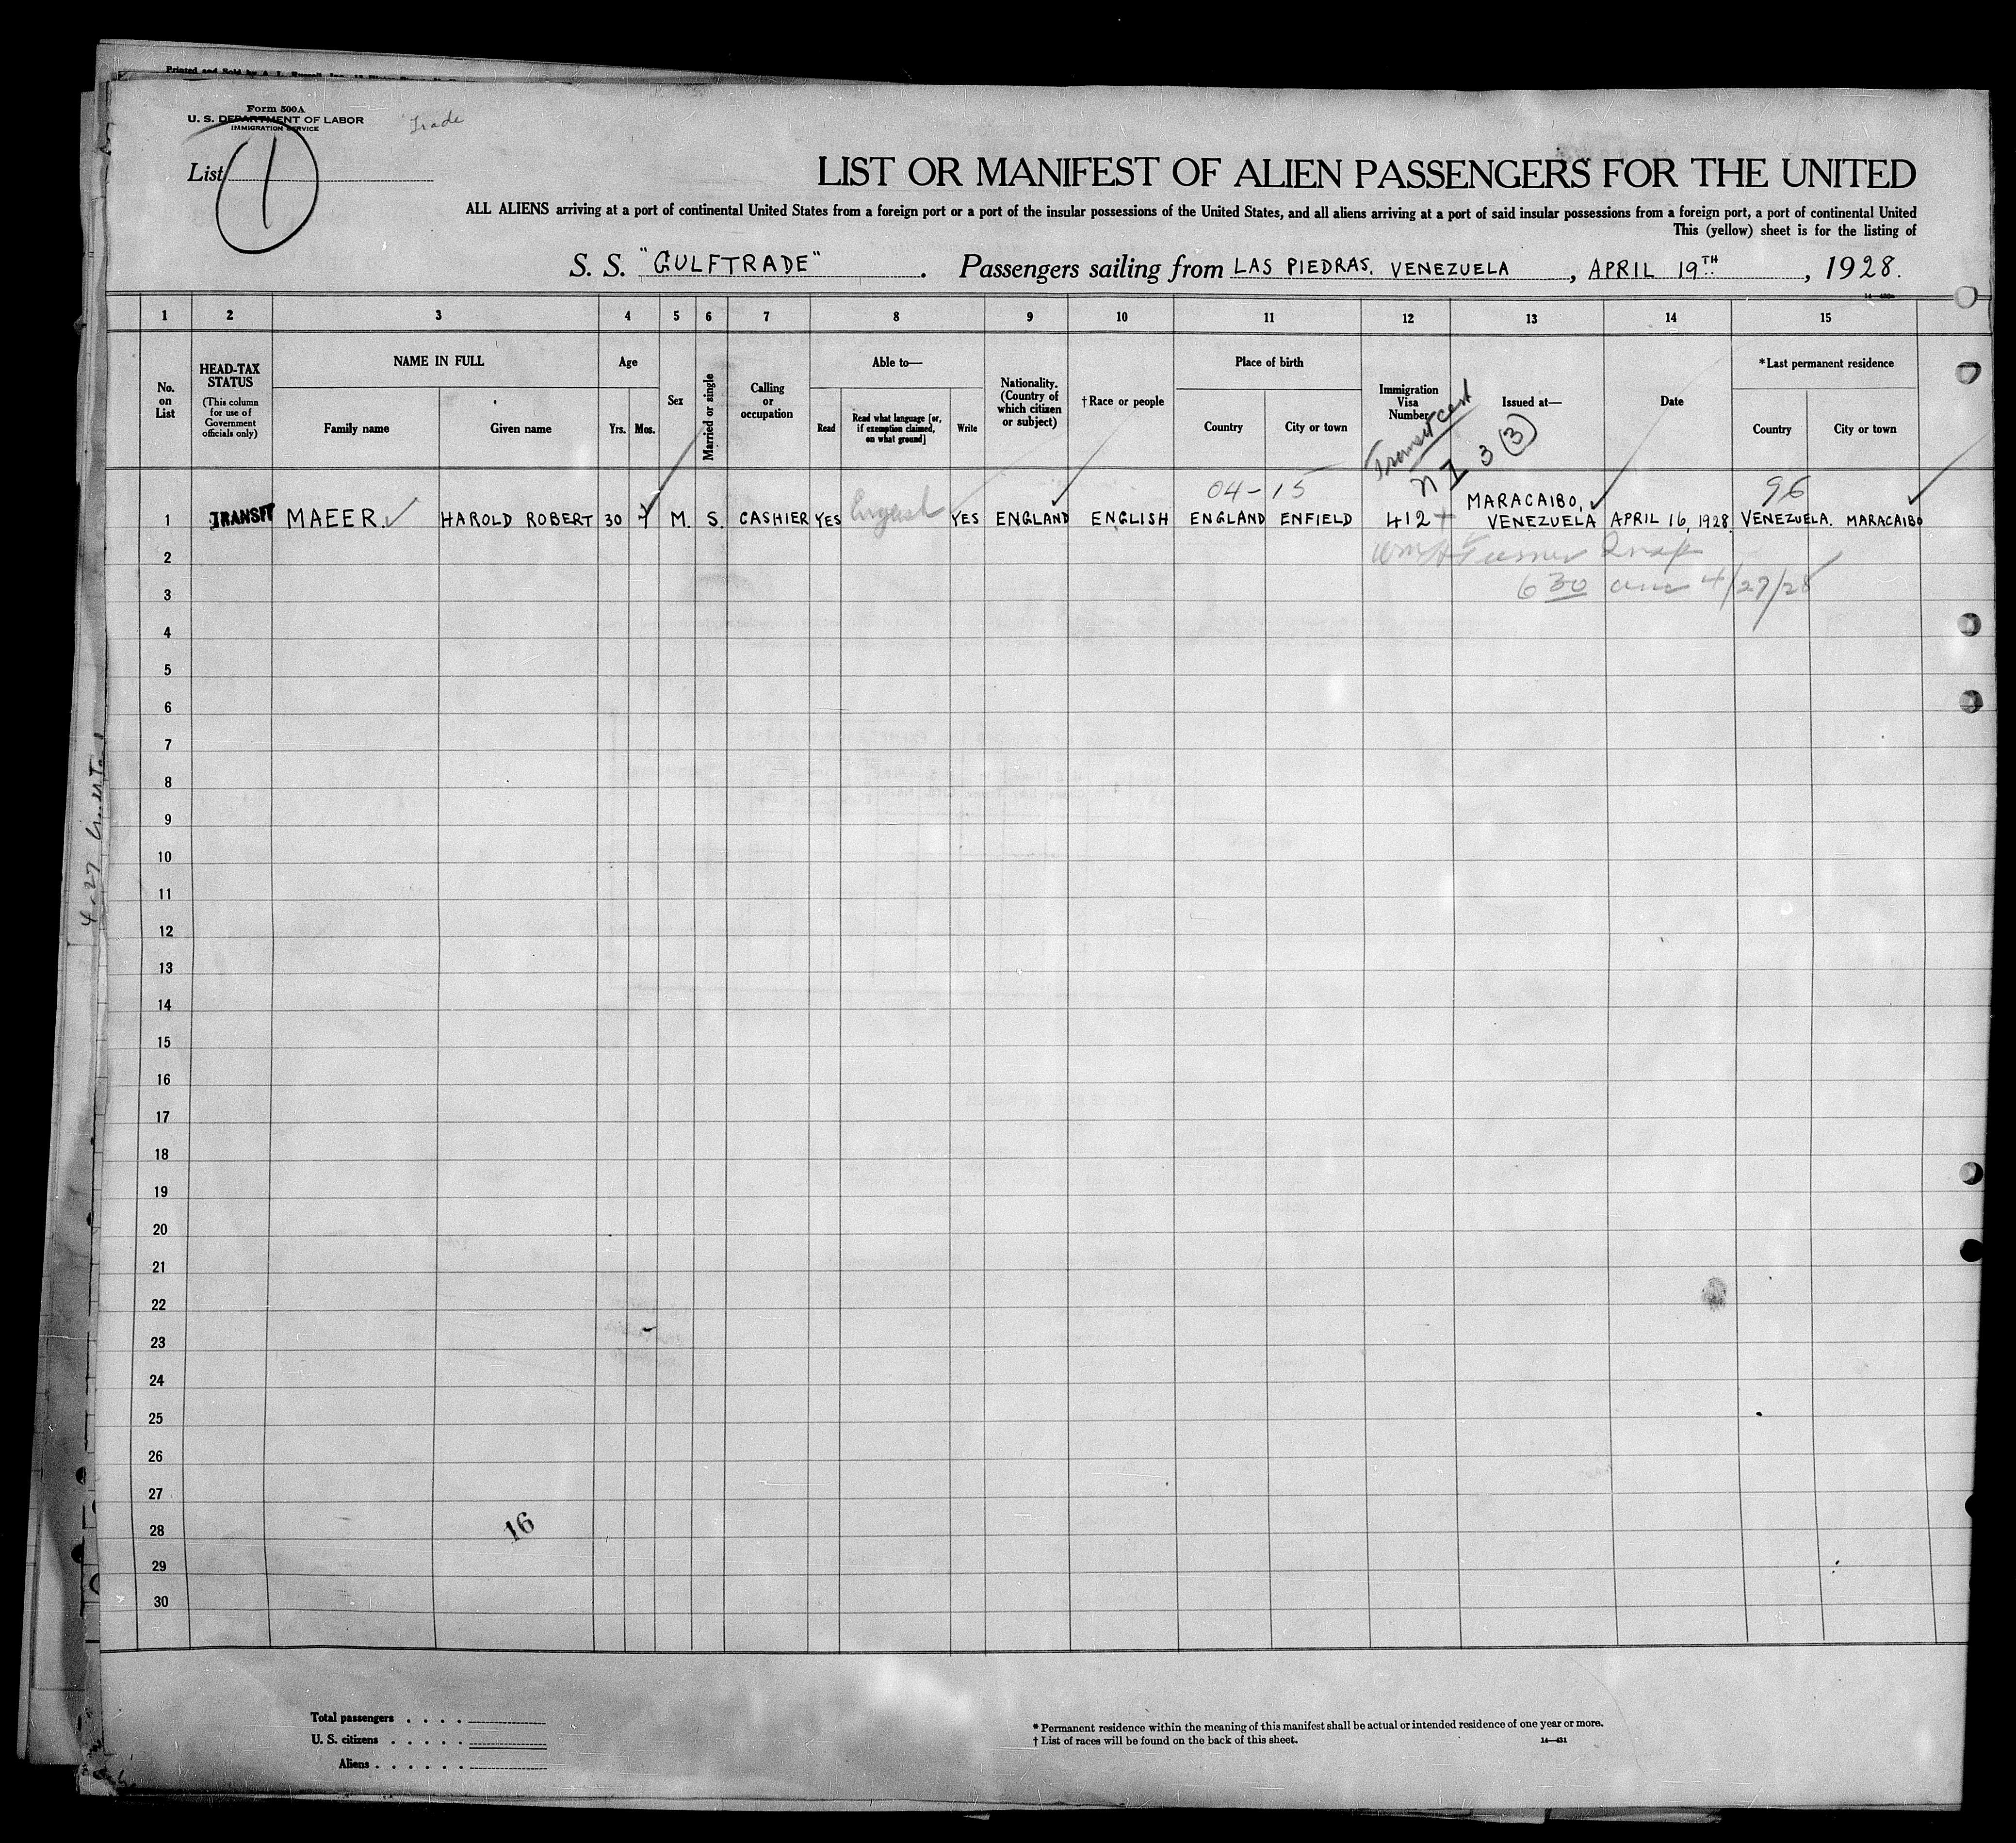 Form 500A
U. S. DEPARTMENT OF LABOR
IMMIGRATION SERVICE
Trade
List 1
LIST OR MANIFEST OF ALIEN PASSENGERS FOR THE UNITED
ALL ALIENS arriving at a port of continental United States from a foreign port or a port of the insular possessions of the United States, and all aliens arriving at a port of said insular possessions from a foreign port, a port of continental United
This (yellow) sheet is for the listing of
S. S. "GULFTRADE". Passengers sailing from LAS PIEDRAS, VENEZUELA, APRIL 19TH, 1928.
1 2 3 4 5 6 7 8 9 10 11 12 13 14 15
No. on List
HEAD-TAX STATUS
(This column for use of Government officials only)
NAME IN FULL
Family name
Given name
Age
Yrs.
Mos.
Sex
Married or single
Calling or occupation
Able to—
Read
Read what language [or, if exemption claimed, on what ground]
Write
Nationality. (Country of which citizen or subject)
†Race or people
Place of birth
Country
City or town
Immigration Visa Number
Issued at—
Date
*Last permanent residence
Country
City or town
Transit cert
3 (3)
04-15
96
1 TRANSIT MAEER HAROLD ROBERT 30 M. S. CASHIER YES English YES ENGLAND ENGLISH ENGLAND ENFIELD 412 MARACAIBO, VENEZUELA APRIL 16, 1928 VENEZUELA. MARACAIBO
2
3 6 30 am 4/27/28
4
5
6
7
8
9
10
11
12
13
14
15
16
17
18
19
20
21
22
23
24
25
26
27
28 16
29
30
Total passengers . . . .
U. S. citizens . . . . .
Aliens . . . . . .
* Permanent residence within the meaning of this manifest shall be actual or intended residence of one year or more.
† List of races will be found on the back of this sheet.
14—431